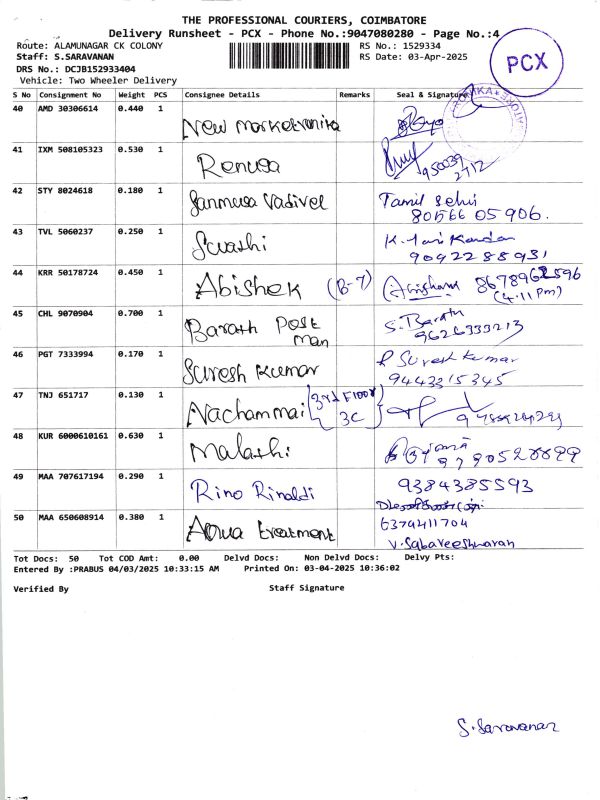 THE PROFESSIONAL COURIERS, COIMBATORE
Delivery Runsheet - PCX - Phone No.:9047080280 - Page No.:4
Route: ALAMUNAGAR CK COLONY
RS No.: 1529334
Staff: S.SARAVANAN
RS Date: 03-Apr-2025
DRS No.: DCJB152933404
Vehicle: Two Wheeler Delivery
PCX
S No Consignment No Weight PCS Consignee Details Remarks Seal & Signature
40 AMD 30306614 0.440 1 New
41 IXM 508105323 0.530 1 Renusa 950039 2712
42 STY 8024618 0.180 1 Sanmusa Vadivel Tamil Selvi
80566 05906.
43 TVL 5060237 0.250 1 Swathi K.
9092288931
44 KRR 50178724 0.450 1 Abishek (B-7)
(4.11 Pm)
45 CHL 9070904 0.700 1 Barath Post man S. Barath
9626333213
46 PGT 7333994 0.170 1 Suresh Kumar Suresh Kumar
9443215345
47 TNJ 651717 0.130 1 Nachammai (3rd Floor 3C)
48 KUR 6000610161 0.630 1 Malathi
49 MAA 707617194 0.290 1 Rino Rinaldi 9384385593
50 MAA 650608914 0.380 1 Aqua treatment
6379411704
V. Sabareeshwaran
Tot Docs: 50 Tot COD Amt: 0.00 Delvd Docs: Non Delvd Docs: Delvy Pts:
Entered By :PRABUS 04/03/2025 10:33:15 AM Printed On: 03-04-2025 10:36:02
Verified By Staff Signature
S. Saravanan